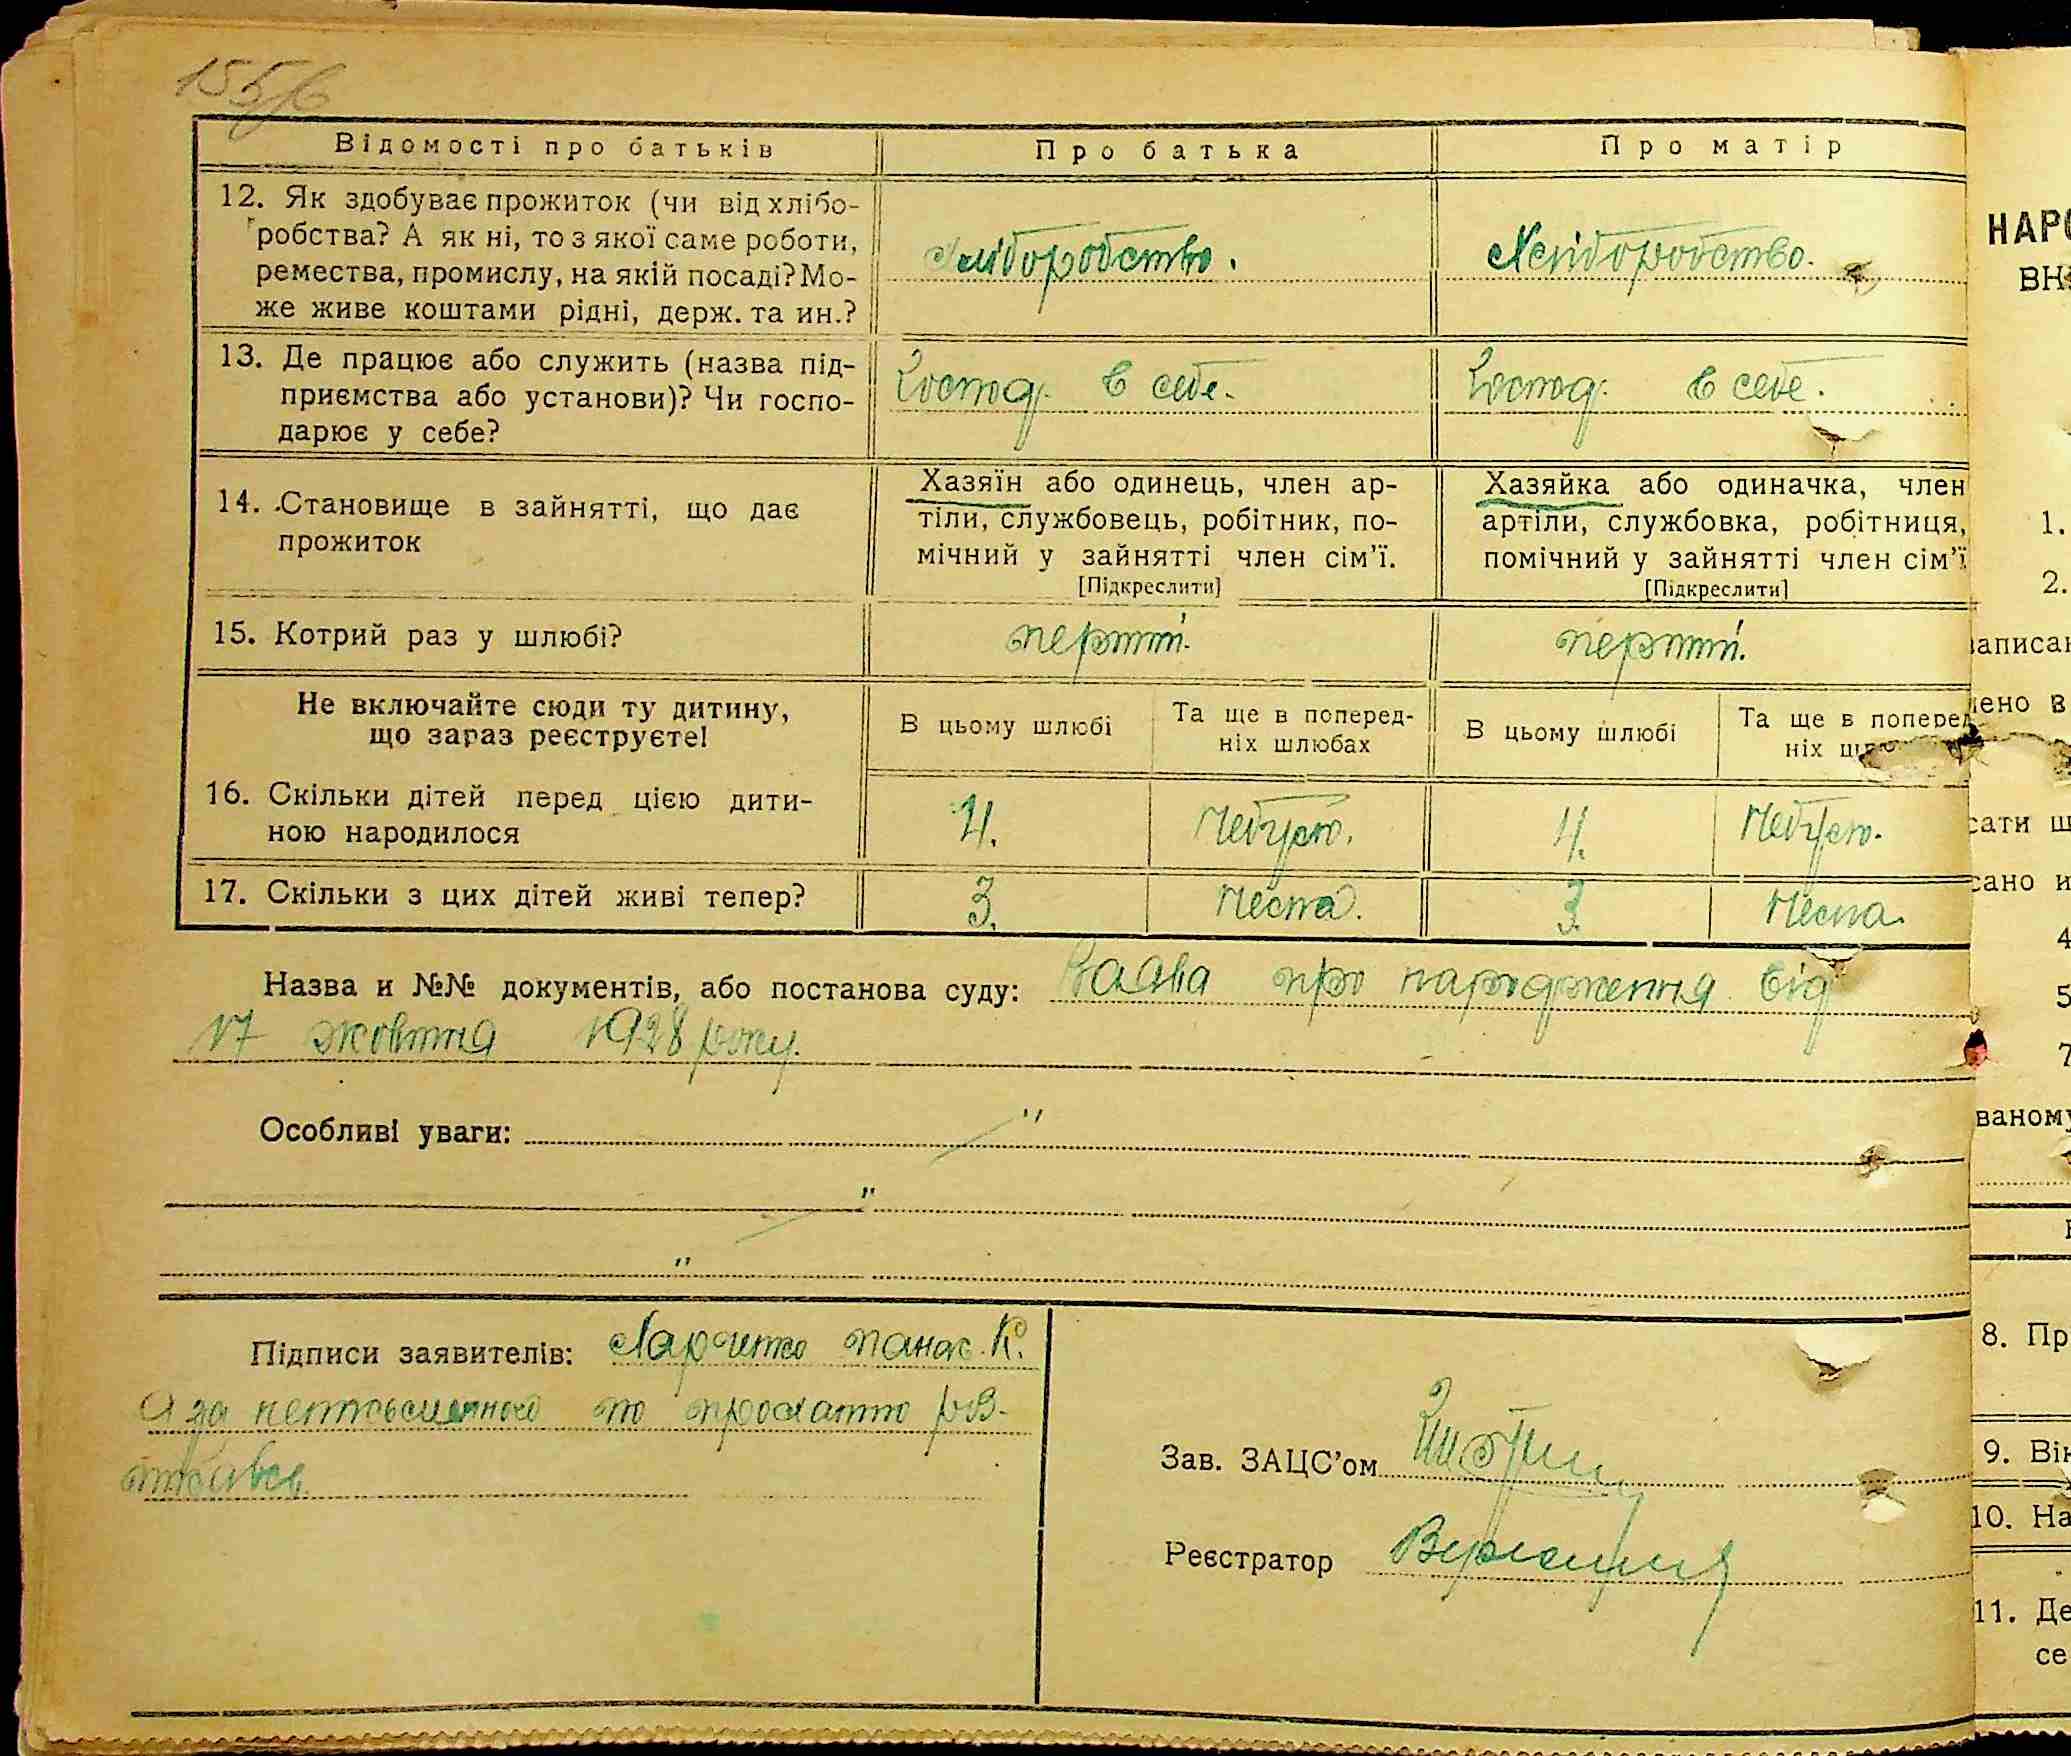 155/б
Відомості про батьків
Про батька
Про матір
12. Як здобуває прожиток (чи від хлібо-
робства? А як ні, то з якої саме роботи,
ремества, промислу, на якій посаді? Мо-
же живе коштами рідні, держ. та ин.?
Хліборобство.
Хліборобство.
13. Де працює або служить (назва під-
приємства або установи)? Чи госпо-
дарює у себе?
Господ. в себе.
Господ. в себе.
14. Становище в зайнятті, що дає
прожиток
Хазяїн або одинець, член ар-
тіли, службовець, робітник, по-
мічний у зайнятті член сім'ї.
[Підкреслити]
Хазяйка або одиначка, член
артіли, службовка, робітниця,
помічний у зайнятті член сім'ї
[Підкреслити]
15. Котрий раз у шлюбі?
перший.
перший.
Не включайте сюди ту дитину,
що зараз реєструєте!
В цьому шлюбі
Та ще в поперед-
ніх шлюбах
В цьому шлюбі
Та ще в поперед
ніх
16. Скільки дітей перед цією дити-
ною народилося
4.
Небуло.
4.
Небуло.
17. Скільки з цих дітей живі тепер?
3.
Нема.
3.
Нема.
Назва и №№ документів, або постанова суду: Заява про народження від
17 жовтня 1928 року.
Особливі уваги:
Підписи заявителів: Харченко Панас К.
А за неписьменного по проханню роз-
писавсь
Зав. ЗАЦС'ом
Реєстратор
НАР
1.
2.
записан
лено в
сати ш
сано и
4
5
7
ваному
8. Пр
9. Він
10. На
11. Де
се